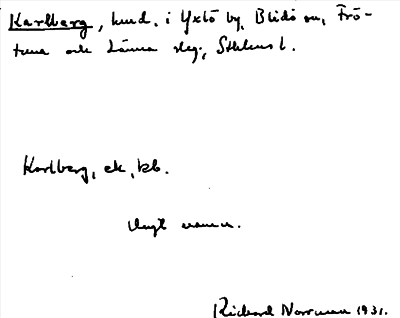 Karlberg, hmd. i Yxlö by, Blidö sn, Frö-
tuna och Länna skg., Sthlms l.
Karlberg, ek, kb.
Ungt namn.
Richard Norrman 1931.